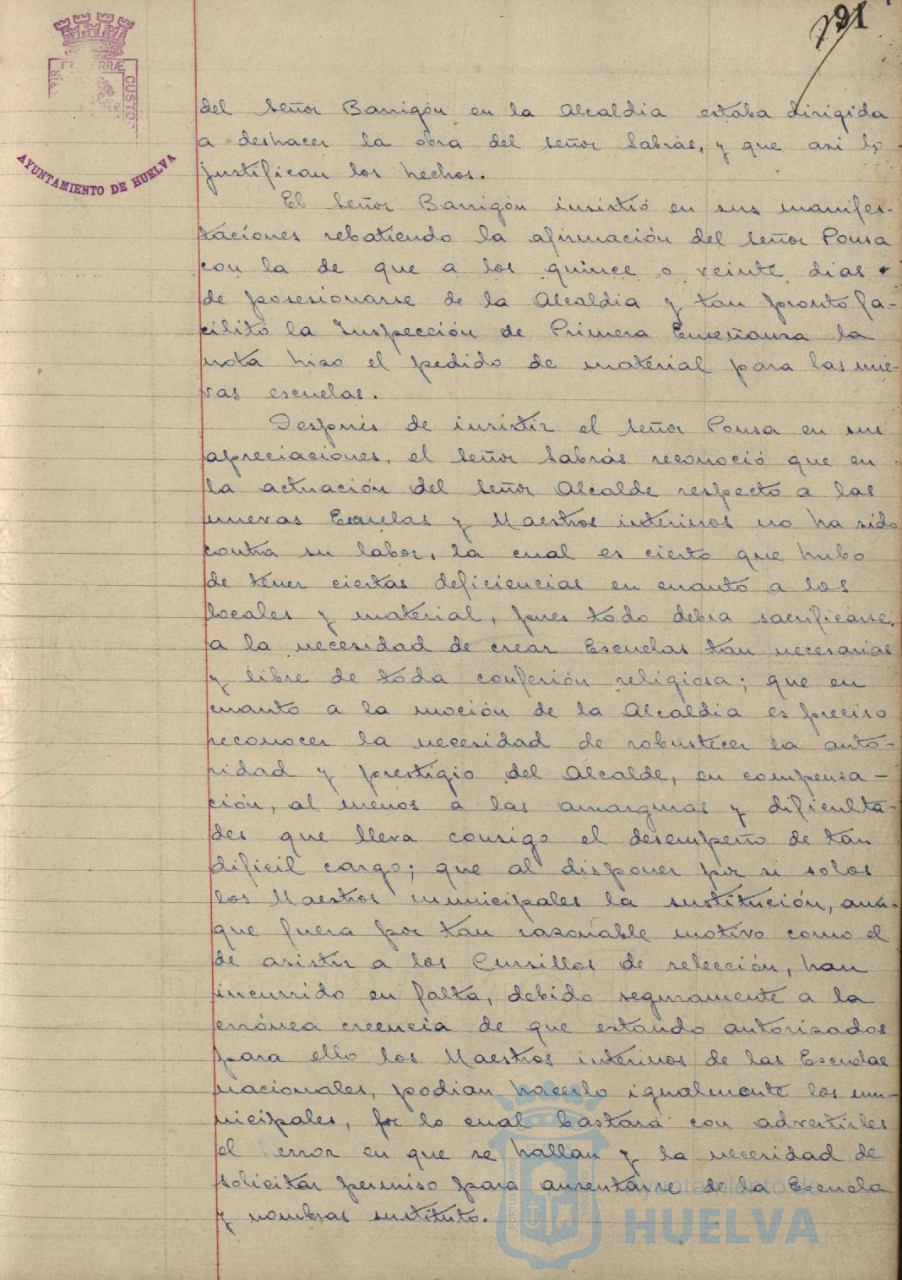 91
PORTUS MARIS ET TERRAE CUSTODIA
AYUNTAMIENTO DE HUELVA
del señor Barrigón en la Alcaldia estaba dirigida
a deshacer la obra del señor Sabrás, y que asi lo
justifican los hechos.
El señor Barrigón insistió en sus manifes-
taciones rebatiendo la afirmación del señor Ponsa
con la de que a los quince o veinte dias
de posesionarse de la Alcaldia y tan pronto fa-
cilitó la Inspección de Primera Enseñanza la
nota hizo el pedido de material para las nue-
vas escuelas.
Después de insistir el señor Ponsa en sus
apreciaciones, el señor Sabrás reconoció que en
la actuación del señor Alcalde respecto a las
nuevas Escuelas y Maestros interinos no ha sido
contra su labor, la cual es cierto que hubo
de tener ciertas deficiencias en cuanto a los
locales y material, pues todo debia sacrificarse
a la necesidad de crear Escuelas tan necesarias
y libre de toda confesión religiosa; que en
cuanto a la moción de la Alcaldia es preciso
reconocer la necesidad de robustecer la auto-
ridad y prestigio del Alcalde, en compensa-
ción, al menos a las amarguras y dificulta-
des que lleva consigo el desempeño de tan
dificil cargo; que al disponer por si solos
los Maestros municipales la sustitución, aun-
que fuera por tan razonable motivo como el
de asistir a los Cursillos de selección, han
incurrido en falta, debido seguramente a la
errónea creencia de que estando autorizados
para ello los Maestros interinos de las Escuelas
nacionales, podian hacerlo igualmente los mu-
nicipales, por lo cual bastará con advertirles
el error en que se hallan y la necesidad de
solicitar permiso para ausentarse de la Escuela
y nombrar sustituto.
Ayuntamiento de
HUELVA